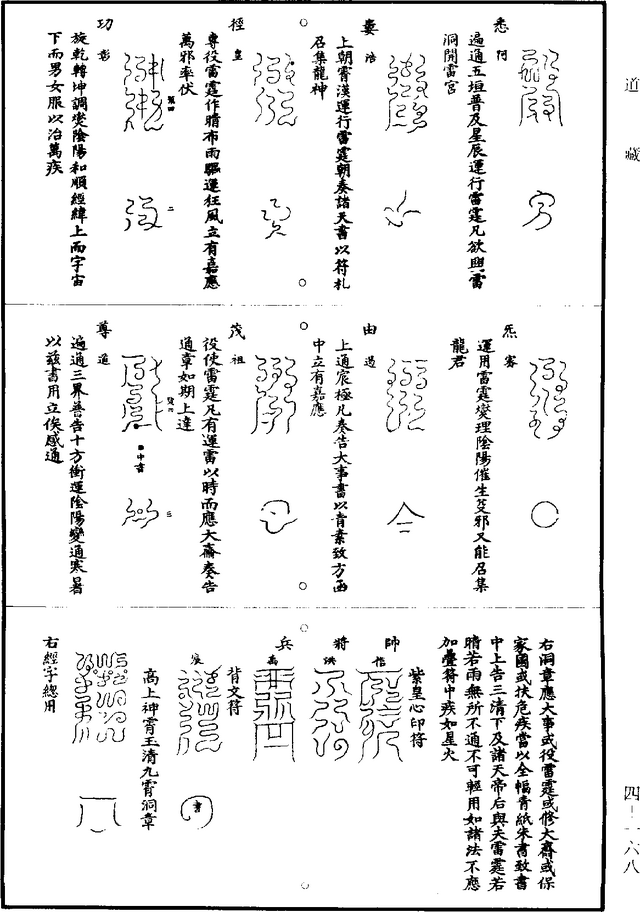 道藏
悉 阿
遍通五垣普及星辰運行雷霆凡欲興雷
洞開雷宮
婁 浩
上朝霄漢運行雷霆朝奏諸天書以符札
召集龍神
徑 皇
專役雷霆作晴布雨驅運狂風立有嘉應
萬邪率伏
功 彰
二
旋乾轉坤調燮陰陽和順經緯上而宇宙
下而男女服以治萬疾
炁 騫
運用雷霆燮理陰陽催生芟邪又能召集
龍君
由 過
上通宸極凡奏告大事書以青素致方函
中立有嘉應
茂 祖
役使雷霆凡有運雷以時而應大齋奏告
通章如期上達
尊 進
中書
三
遍通三界善告十方衝運陰陽變通寒暑
以兹書用立俟感通
右洞章應大事或役雷霆或修大齋或保
家國或扶危疾當以全幅青紙朱書致書
中上告三清下及諸天帝后與夫雷霆若
晴若雨無所不通不可輕用如諸法不應
加疊符中疾如星火
紫皇心印符
帥
將 洪
兵
背文符
書
高上神霄玉清九霄洞章
右經字總用
四-一六八